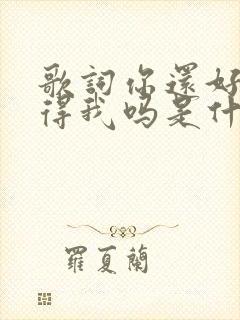 歌詞你還好
得我吗是什
羅夏蘭